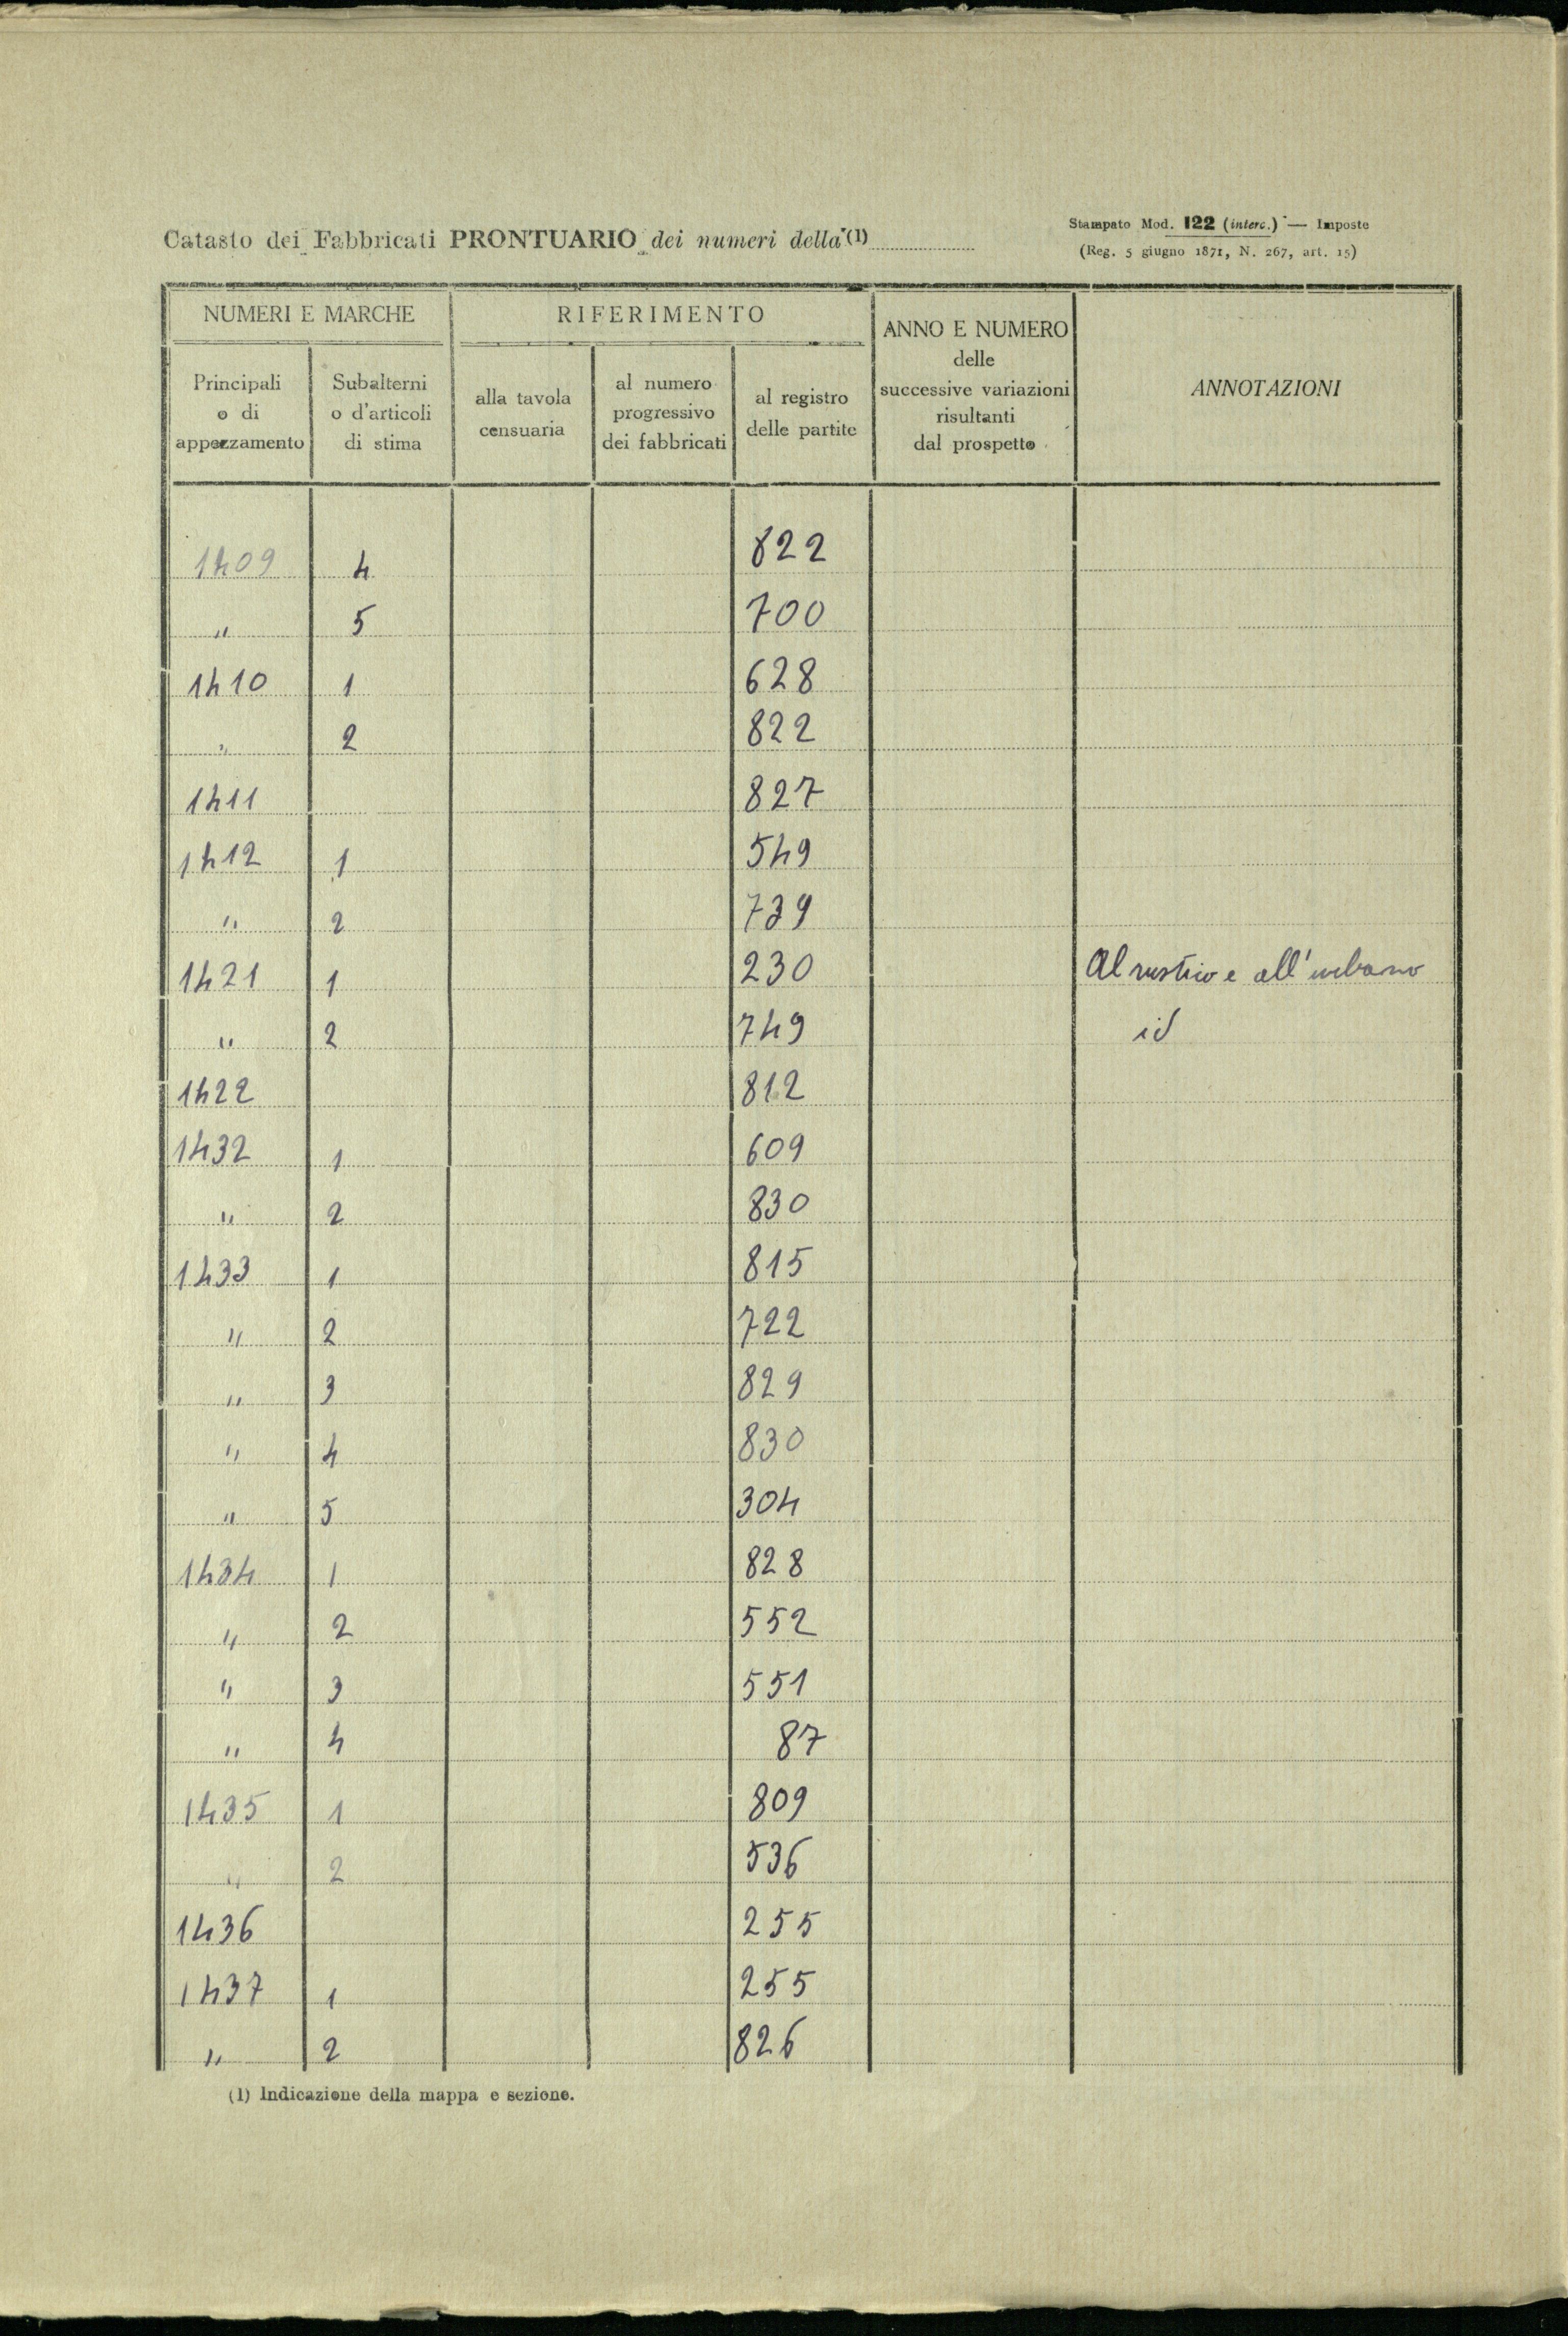 Catasto dei Fabbricati PRONTUARIO dei numeri della (1)
Stampato Mod. 122 (interc.) — Imposte
(Reg. 5 giugno 1871, N. 267, art. 15)
NUMERI E MARCHE
RIFERIMENTO
ANNO E NUMERO
delle
successive variazioni
risultanti
dal prospetto
ANNOTAZIONI
Principali
o di
appezzamento
Subalterni
o d'articoli
di stima
alla tavola
censuaria
al numero
progressivo
dei fabbricati
al registro
delle partite
1409 4 822
" 5 700
1410 1 628
" 2 822
1411 827
1412 1 549
" 2 739
1421 1 230 Al rustico e all'urbano
" 2 749 id
1422 812
1432 1 609
" 2 830
1433 1 815
" 2 722
" 3 829
" 4 830
" 5 304
1434 1 828
" 2 552
" 3 551
" 4 87
1435 1 809
" 2 536
1436 255
1437 1 255
" 2 826
(1) Indicazione della mappa e sezione.